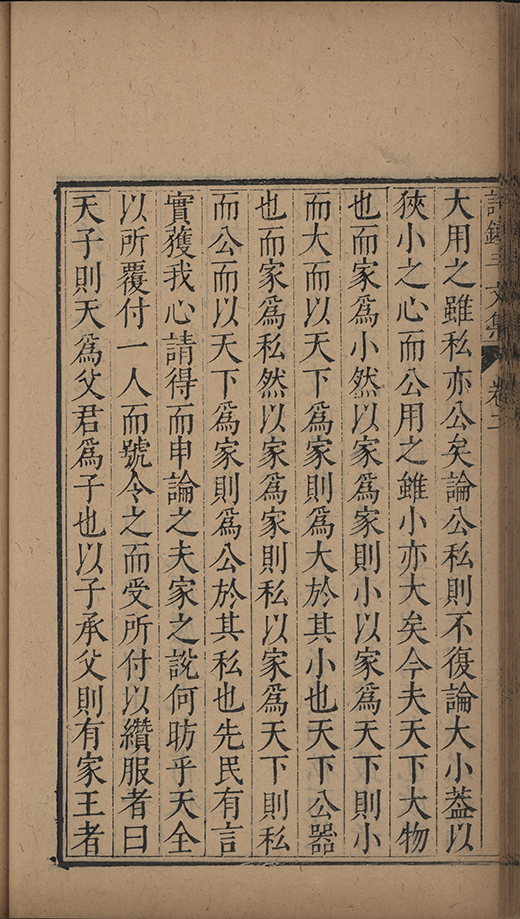 文集 卷二
大用之雖私亦公矣論公私則不復論大小葢以
狹小之心而公用之雖小亦大矣今夫天下大物
也而家爲小然以家爲家則小以家爲天下則小
而大而以天下爲家則爲大於其小也天下公器
也而家爲私然以家爲家則私以家爲天下則私
而公而以天下爲家則爲公於其私也先民有言
實獲我心請得而申論之夫家之說何昉乎天全
以所覆付一人而號令之而受所付以纘服者曰
天子則天爲父君爲子也以子承父則有家王者